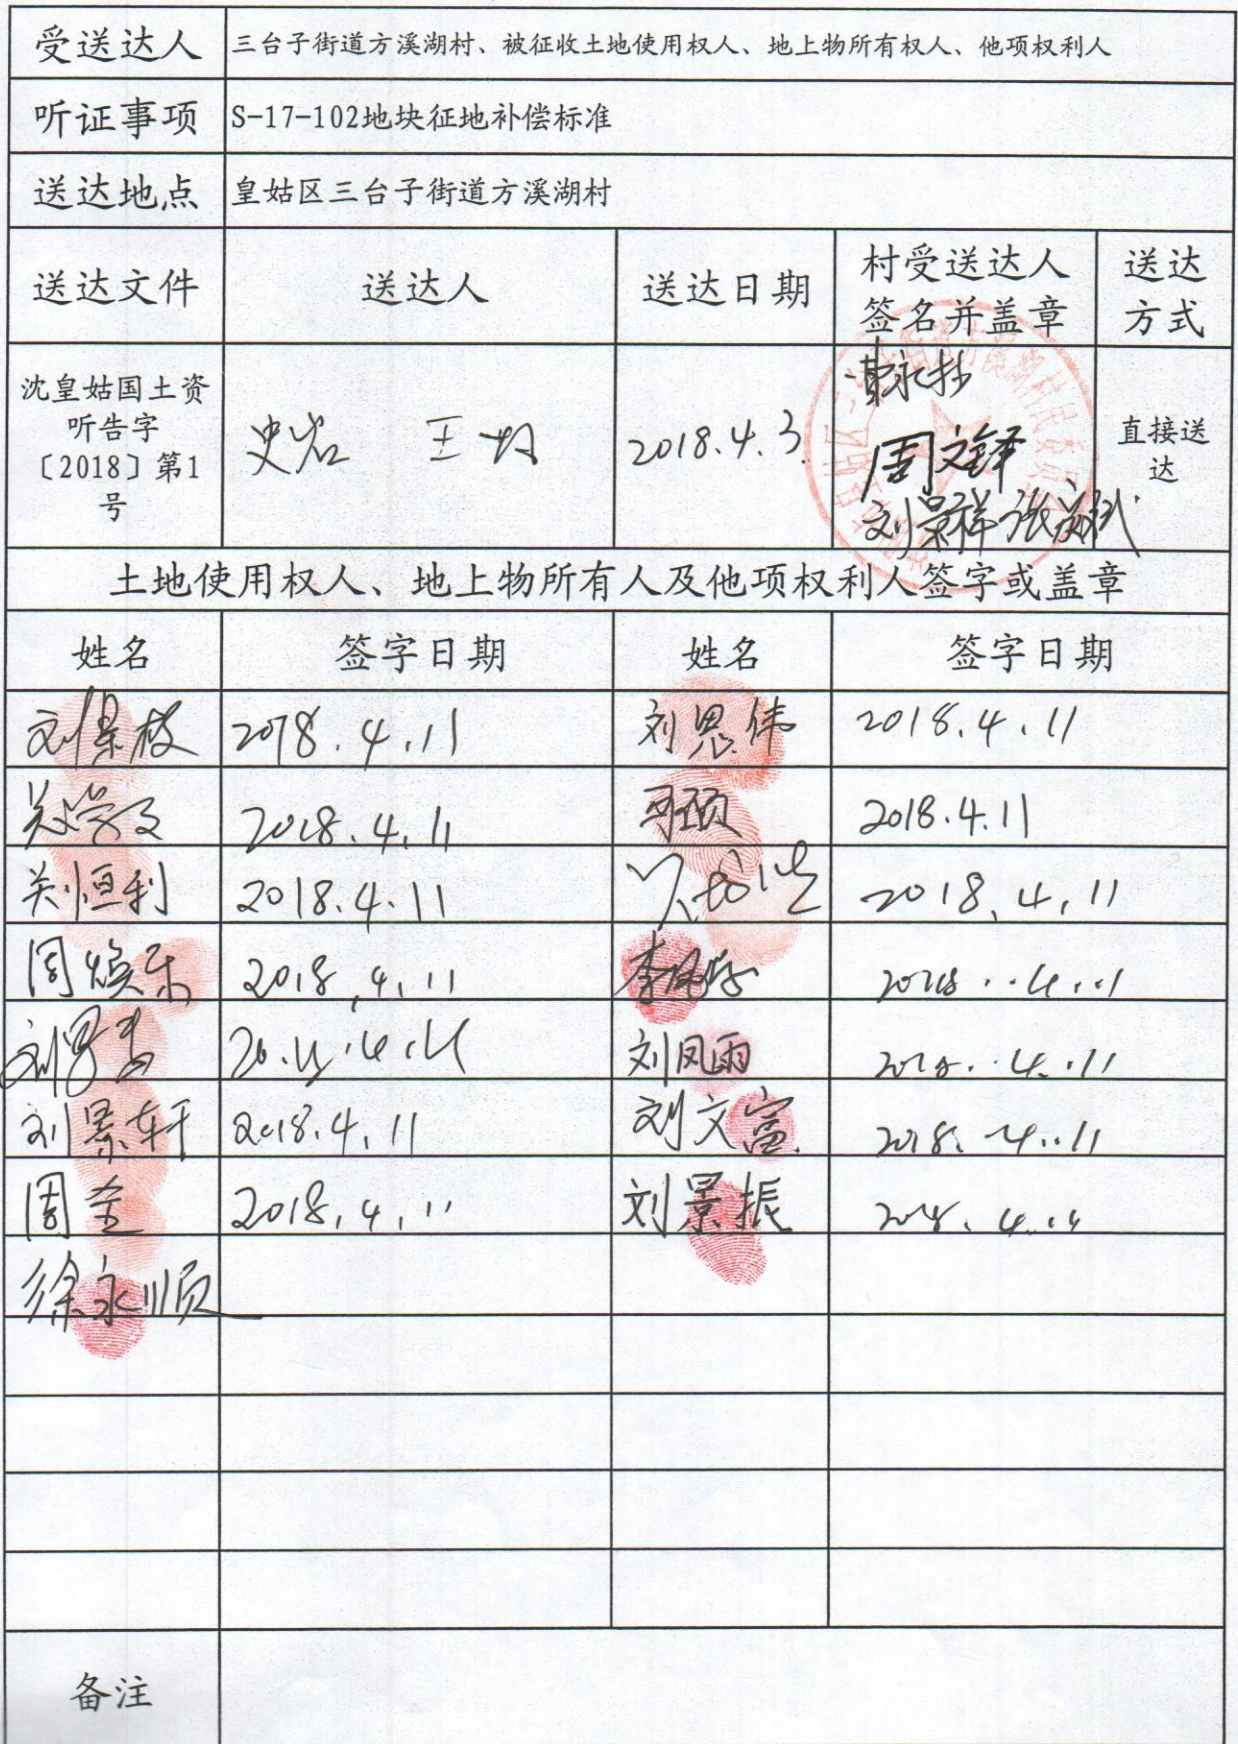 受送达人 三台子街道方溪湖村、被征收土地使用权人、地上物所有权人、他项权利人
听证事项 S-17-102地块征地补偿标准
送达地点 皇姑区三台子街道方溪湖村
送达文件 送达人 送达日期 村受送达人 送达
签名并盖章 方式
沈皇姑国土资
听告字
〔2018〕第1
号
史岩 王 2018.4.3.
周文铎
刘景祥
直接送
达
土地使用权人、地上物所有人及他项权利人签字或盖章
姓名 签字日期 姓名 签字日期
刘景枝 2018.4.11 刘思伟 2018.4.11
2018.4.11 2018.4.11
关恒利 2018.4.11 2018.4.11
周焕东 2018.4.11 2018.4.11
刘凤雨 2018.4.11
刘景轩 2018.4.11 刘文富 2018.4.11
周全 2018.4.11 刘景振 2018.4.11
徐永顺
备注